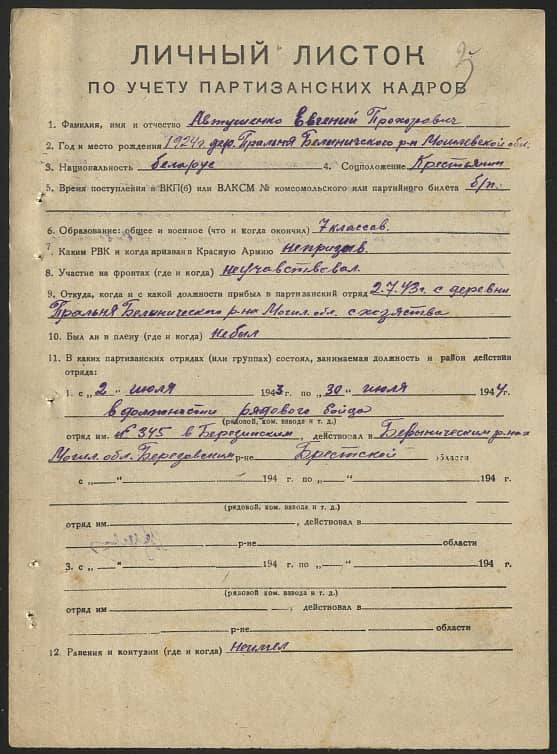 25
ЛИЧНЫЙ ЛИСТОК
ПО УЧЕТУ ПАРТИЗАНСКИХ КАДРОВ
1. Фамилия, имя и отчество Автушенко Евгений Прохорович
2. Год и место рождения 1924г. дер. Пральня Белыничского р-н Могилевской обл.
3. Национальность беларус 4. Соцположение Крестьянин
5. Время поступления в ВКП(б) или ВЛКСМ № комсомольского или партийного билета б/п.
6. Образование: общее и военное (что и когда окончил) 7 классов.
7. Каким РВК и когда призван в Красную Армию непризыв.
8. Участие на фронтах (где и когда) неучавствовал.
9. Откуда, когда и с какой должности прибыл в партизанский отряд 2.7.43г. с деревни
Пральня Белынического р-на Могил. обл. с хозяства
10. Был ли в плену (где и когда) небыл
11. В каких партизанских отрядах (или группах) состоял, занимаемая должность и район действии
отряда:
1. с „2“ июля 1943 г. по „30“ июля 1944г.
в должности рядового бойца
(рядовой, ком. взвода и т. д.)
отряд им. № 345 в Березинским, действовал в Белыническим р-нах
Могил. обл. Березовским р-не Брестской области
с „—“ 194 г. по „—“ 194 г.
(рядовой, ком. взвода и т. д.)
отряд им. , действовал в
р-не области
3. с „—“ 194 г. по „—“ 194 г.
(рядовой, ком. взвода и т. д.)
отряд им , действовал в
р-не области
12. Ранения и контузии (где и когда) неимел